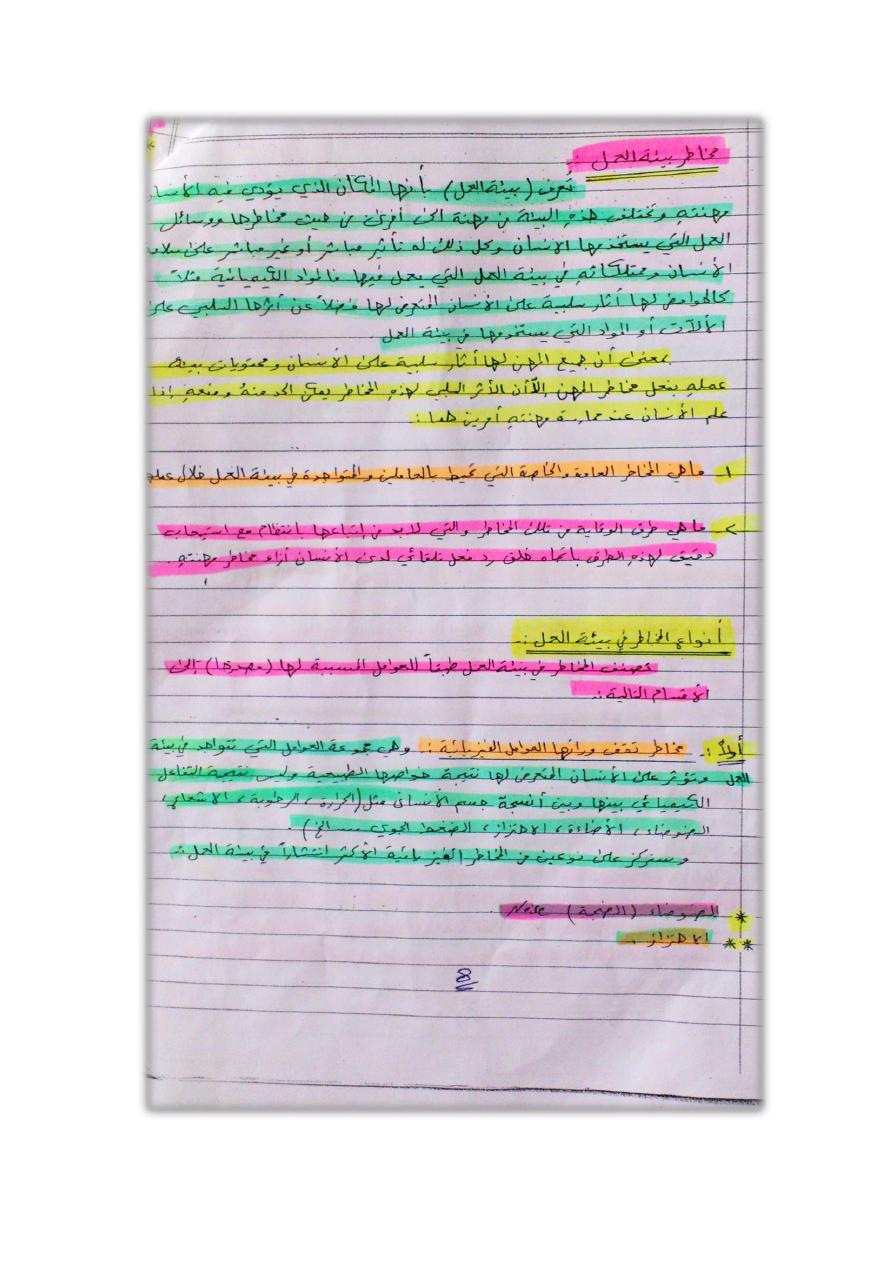 مخاطر بيئة العمل :
تُعرف (بيئة العمل) بأنها المكان الذي يؤدي فيه الأنسان
مهنته وتختلف هذه البيئة من مهنة الى أخرى من حيث مخاطرها ووسائل
العمل التي يستخدمها الانسان وكل ذلك له تأثير مباشر أو غير مباشر على سلامة
الأنسان وممتلكاته في بيئة العمل التي يعمل فيها فالمواد الكيميائية مثلاً
كالحوامض لها آثار سلبية على الانسان المتعرض لها فضلاً عن أثرها السلبي على
الآلات أو المواد التي يستخدمها في بيئة العمل.
بمعنى أن جميع المهن لها آثار سلبية على الأنسان ومحتويات بيئة
عمله بفعل مخاطر المهن إلا أن الأثر السلبي لهذه المخاطر يمكن الحد منه ومنعه إذا
علم الأنسان عند ممارسة مهنته أمرين هما :
١ـ ماهي المخاطر العامة والخاصة التي تحيط بالعاملين والمتواجدة في بيئة العمل خلال عمله
٢ـ ماهي طرق الوقاية من تلك المخاطر والتي لابد من إتباعها بأنتظام مع استيعاب
دقيق لهذه الطرق باتجاه خلق رد فعل تلقائي لدى الأنسان أزاء مخاطر مهنته.
أنواع المخاطر في بيئة العمل :ـ
تصنف المخاطر في بيئة العمل طبقاً للعوامل المسببة لها (مصدرها) إلى
الأقسام التالية :ـ
أولاً :ـ مخاطر تقف ورائها العوامل الفيزيائية : وهي مجموعة العوامل التي تتواجد في بيئة
العمل وتؤثر على الأنسان المتعرض لها نتيجة خواصها الطبيعية وليس نتيجة التفاعل
الكيميائي بينها وبين أنسجة جسم الأنسان مثل (الحرارة، الرطوبة، الاشعاعي
الضوضاء، الأضاءة، الاهتزاز، الضغط الجوي .... الخ).
وسنركز على نوعين من المخاطر الفيزيائية الأكثر انتشاراً في بيئة العمل :ـ
* الضوضاء (الضجة) Noise
** الاهتزاز.
8